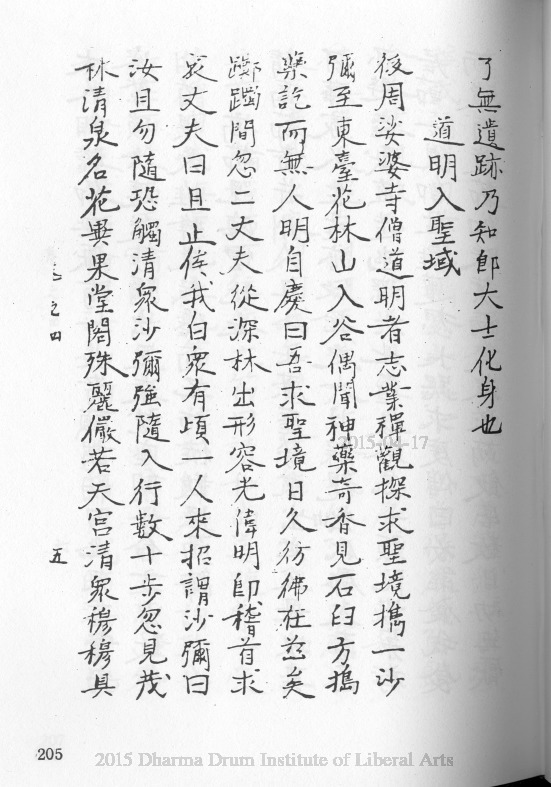 了無遺跡乃知即大士化身也
道明入聖域
後周娑婆寺僧道明者志業禪觀探求聖境擕一沙
彌至東臺花林山入谷偶聞神藥奇香見石臼方搗
藥訖而無人明自慶曰吾求聖境日久彷彿在茲矣
躑躅間忽二丈夫從深林出形容光偉明即稽首求
哀丈夫曰且止俟我白衆有頃一人來招謂沙彌曰
汝且勿隨恐觸清衆沙彌強隨入行數十步忽見茂
林清泉名花異果堂閣殊麗儼若天宫清衆穆穆具
卷之四
五
205
2015-04-17
2015 Dharma Drum Institute of Liberal Arts